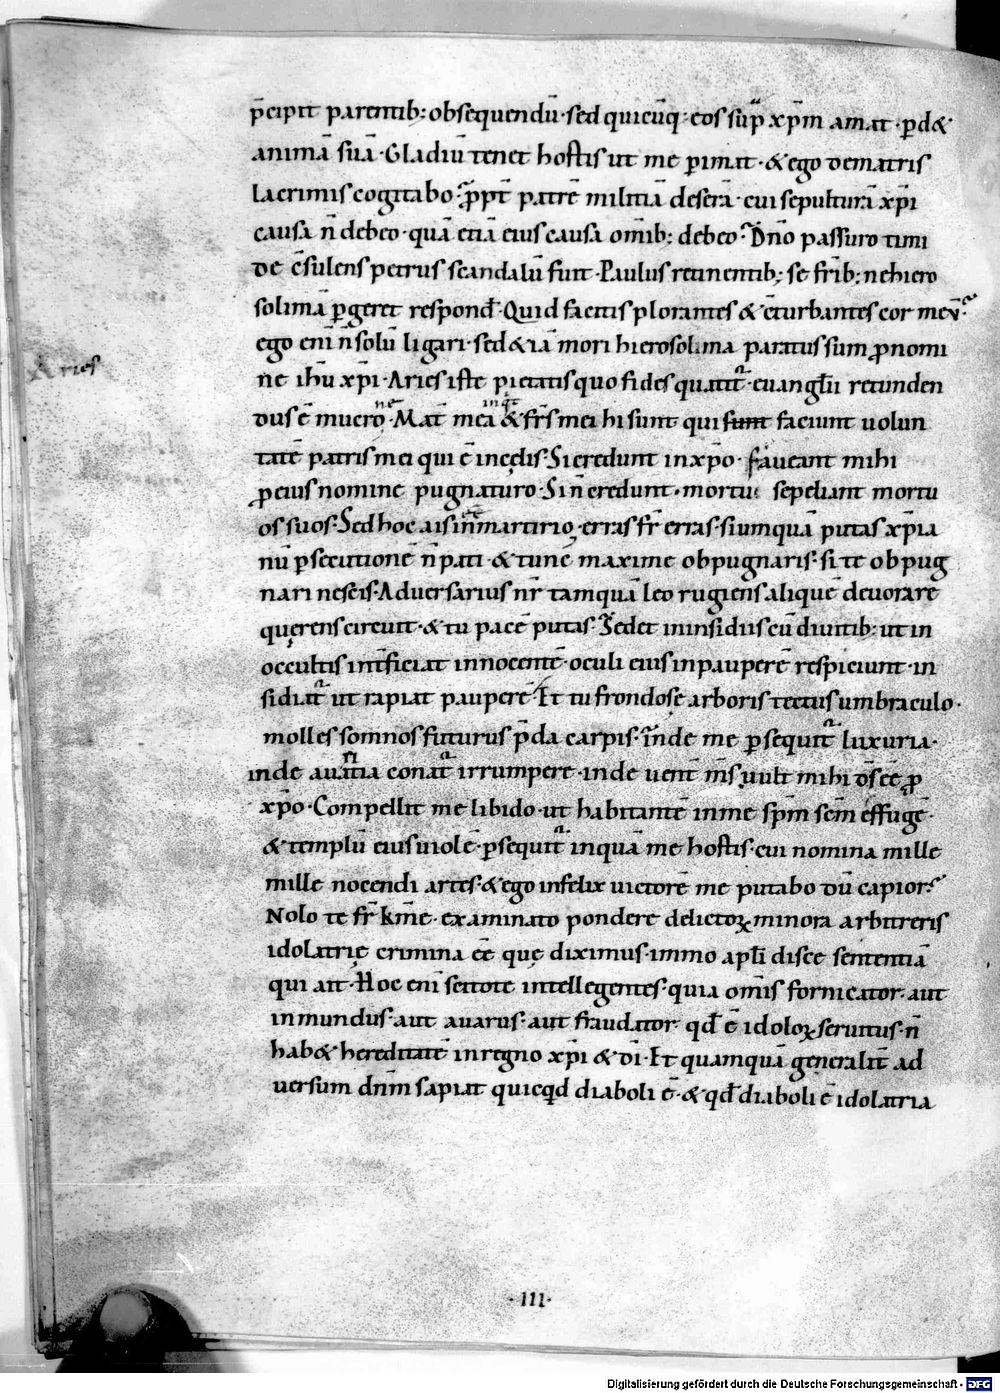 p̄cipit parentib; obsequendū· sed quicūq; eos sup̄ xp̄m amat· ꝑd&
animā suā· Gladiū tenet hostis ut me ꝑimat· & ego dematris
lacrimis cogitabo· ꝓpt̄ patrē militiā deserā· cui sepulturā xp̄i
causa n̄ debeo· quā etiā eius causa omīb; debeo· Dn̄o passuro timi
de c̄sulens petrus scandalū fuit· Paulus retinentib; se fr̄ib; nehiero
solimā ꝑgeret respond̄· Quid facitis plorantes & c̄turbantes cor meū·
Aries
ego eni n̄ solū ligari· sed & iā mori hierosolima paratus sum ꝓ nomi
ne ih̄u xp̄i· Aries iste pietatis quo fides quatit̄· euangl̄ii retunden
dus ē mucrone· Mat̄ mea inqt & fr̄s mei hi sunt qui sunt faciunt uolun
tatē patris mei qui ē in cęlis· Si credunt in xp̄o· faueant mihi
ꝓ eius nomine pugnaturo· Si n̄ credunt· mortui sepeliant mortu
os suos· Sed hoc ais in martirio· erras fr̄ erras· si umquā putas xp̄ia
nū ꝑsecutionē n̄ pati· & tunc maxime obpugnaris· si te obpug
nari nescis· Aduersarius nr̄ tamquā leo rugiens aliquē deuorare
quęrens circuit· & tu pacē putas· Sedet in insidiis cū diuitib; ut in
occultis int̄ficiat innocentē· oculi eius in pauperē respiciunt· in
sidiat̄ ut rapiat pauperē· Et tu frondose arboris tectus umbraculo·
molles somnos futurus p̄da carpis· Inde me ꝑsequit̄ luxuria·
inde auaritia conat̄ irrumpere· inde uent̄ ms̄ uult mihi d̄s eē ꝓ
xp̄o· Compellit me libido· ut habitantē in me sp̄m sc̄m effugē·
& templū eius uiolē· ꝑsequit̄ inquā me hostis· cui nomina mille
mille nocendi artes· & ego infelix uictorē me putabo dū capior·
Nolo te fr̄ km̄e· examinato pondere delictoꝝ minora arbitreris
idolatrię crimina eē quę diximus· immo apl̄i disce sententiā
qui ait· Hoc eni scitote intellegentes· quia omis fornicator· aut
inmundus· aut auarus· aut fraudator· qd̄ ē idoloꝝ seruitus· n̄
hab& hereditatē in regno xp̄i & dī· Et quamquā generalit̄ ad
uersum dn̄m sapiat quicqd diaboli ē· & qd̄ diaboli ē idolatria
·111·
Digitalisierung gefördert durch die Deutsche Forschungsgemeinschaft - DFG